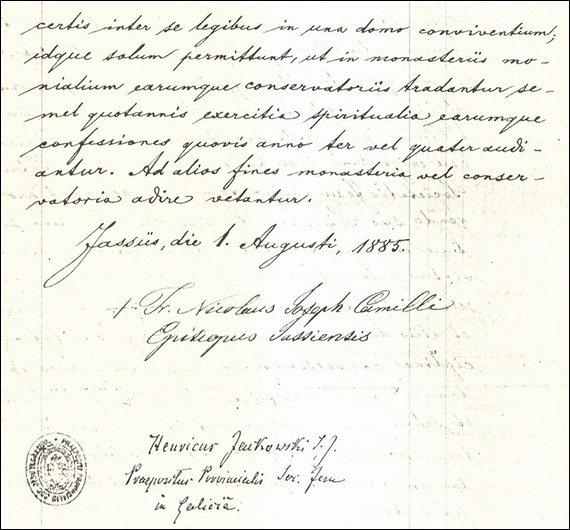 certis inter se legibus in una domo conviventium;
idque solum permittunt, ut in monasteriis mo-
nialium earumque conservatoriis tradantur se-
mel quotannis exercitia spiritualia earumque
confessiones quovis anno ter vel quater audi-
antur. Ad alios fines monasteria vel conser-
vatoria adire vetantur.
Jassiis, die 1. Augusti, 1885.
+ Fr. Nicolaus Joseph Camilli
Episcopus Jassiensis
Henricus Jackowski S. J.
Praepositus Provincialis Soc. Jesu
in Galicia.